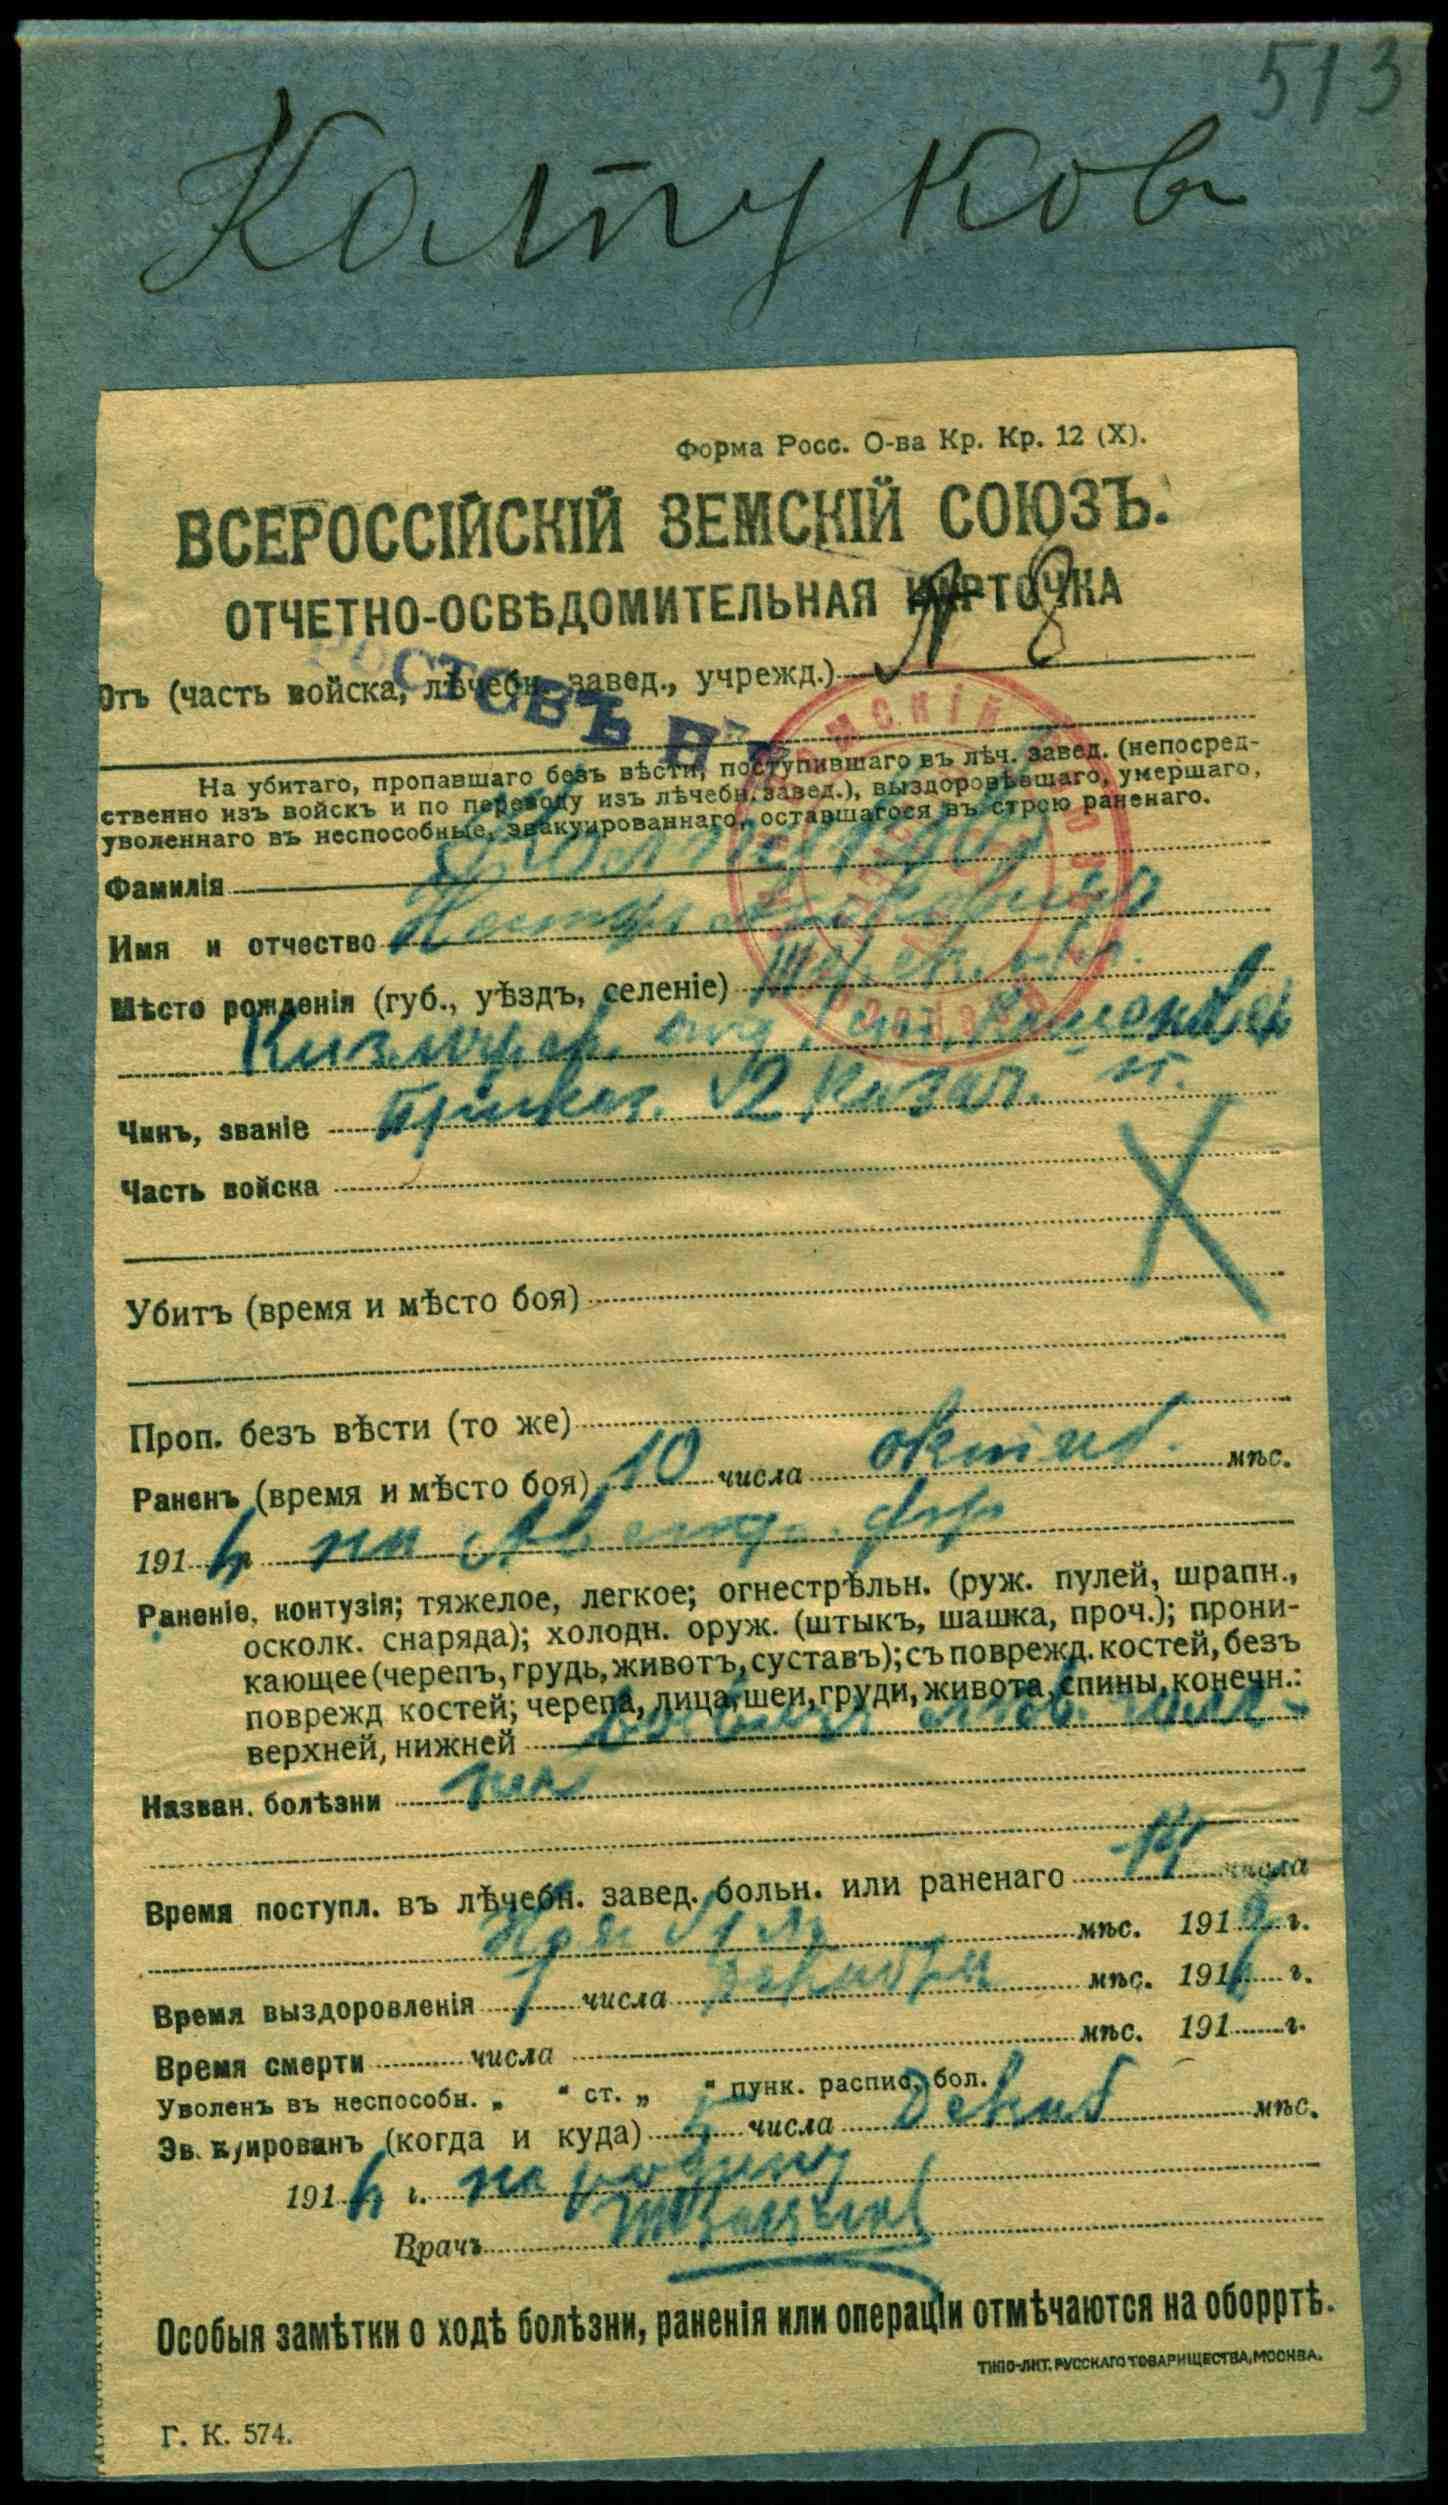 513
Калтуков
Форма Росс. О-ва Кр. Кр. 12 (X).
ВСЕРОССІЙСКІЙ ЗЕМСКІЙ СОЮЗЪ.
ОТЧЕТНО-ОСВѢДОМИТЕЛЬНАЯ КАРТОЧКА
Отъ (часть войска, лѣчебн. завед., учрежд.) № 8
РОСТОВЪ Н/Д
На убитаго, пропавшаго безъ вѣсти, поступившаго въ лѣч. завед. (непосред-
ственно изъ войскъ и по переводу изъ лѣчебн. завед.), выздоровѣвшаго, умершаго,
уволеннаго въ неспособные, эвакуированнаго, оставшагося въ строю раненаго.
Фамилія Калтуковъ
Имя и отчество Нестеръ
Мѣсто рожденія (губ., уѣздъ, селеніе) Терск. обл.
Кизлярск. отд. ст.
Чинъ, званіе Приказ. 2 Казач. п.
Часть войска
Убитъ (время и мѣсто боя)
Проп. безъ вѣсти (то же)
Раненъ (время и мѣсто боя) 10 числа октяб. мѣс.
191 на фр
Раненіе, контузія; тяжелое, легкое; огнестрѣльн. (руж. пулей, шрапн.,
осколк. снаряда); холодн. оруж. (штыкъ, шашка, проч.); прони-
кающее (черепъ, грудь, животъ, суставъ); съ поврежд. костей, безъ
поврежд костей; черепа, лица, шеи, груди, живота, спины, конечн.:
верхней, нижней
Назван. болѣзни
Время поступл. въ лѣчебн. завед. больн. или раненаго 14 числа
Ноя мѣс. 191 г.
Время выздоровленія 1 числа декабря мѣс. 191 г.
Время смерти числа мѣс. 191 г.
Уволенъ въ неспособн. „ “ ст. „ “ пунк. распис. бол.
Эвакуированъ (когда и куда) 5 числа Декаб мѣс.
191 г. на родину
Врачъ
Особыя замѣтки о ходѣ болѣзни, раненія или операціи отмѣчаются на оборртѣ.
ТИПО-ЛИТ. РУССКАГО ТОВАРИЩЕСТВА, МОСКВА.
Г. К. 574.